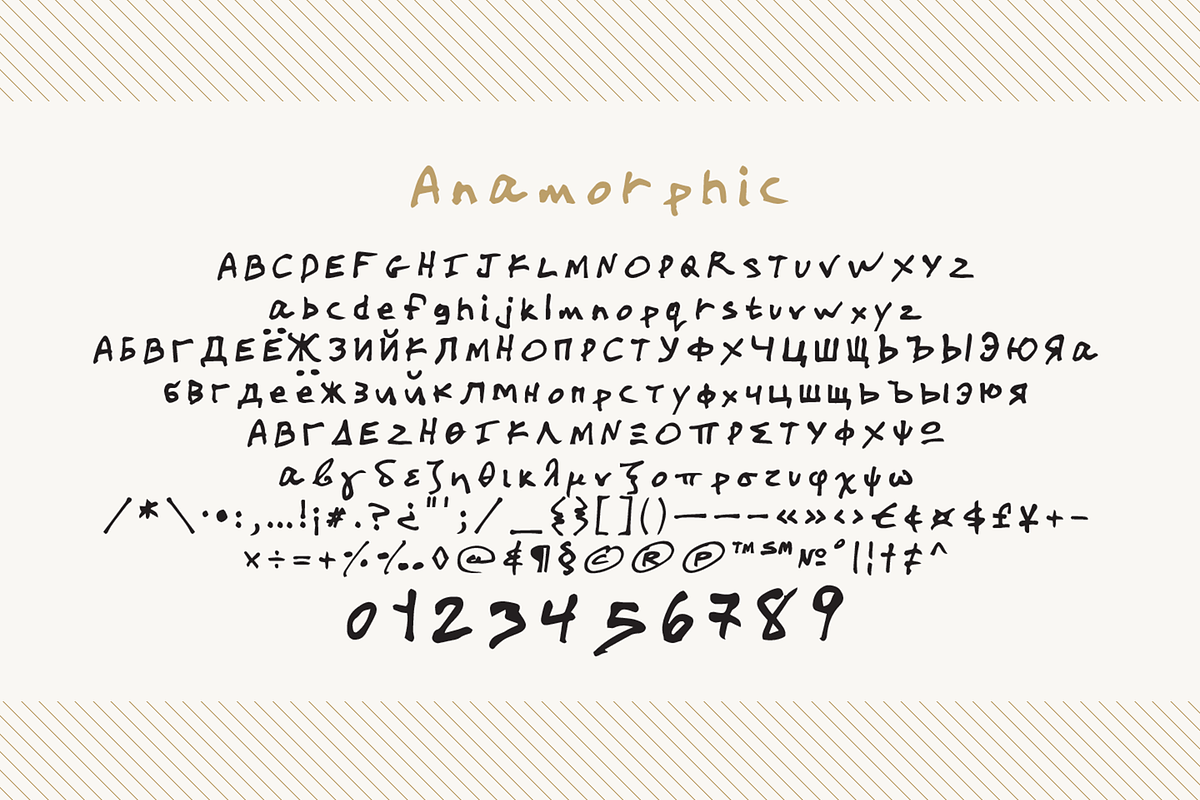 Anamorphic
ABCDEFGHIJKLMNOPQRSTUVWXYZ
abcdefghijklmnopqrstuvwxyz
АБВГДЕЁЖЗИЙКЛМНОПРСТУФХЧЦШЩЬЪЫЭЮЯа
бвгдеёжзийклмнопрстуфхчцшщьъыэюя
ΑΒΓΔΕΖΗΘΙΚΛΜΝΞΟΠΡΣΤΥΦΧΨΩ
αβγδεζηθικλμνξοπρσςυφχψω
/*\·•:,…!¡#.?¿"';/_{}[]()—–-«»‹›€¢¤$£¥+−
×÷=+٪‰◊@&¶§©®℗™℠№°|¦†‡^
0123456789